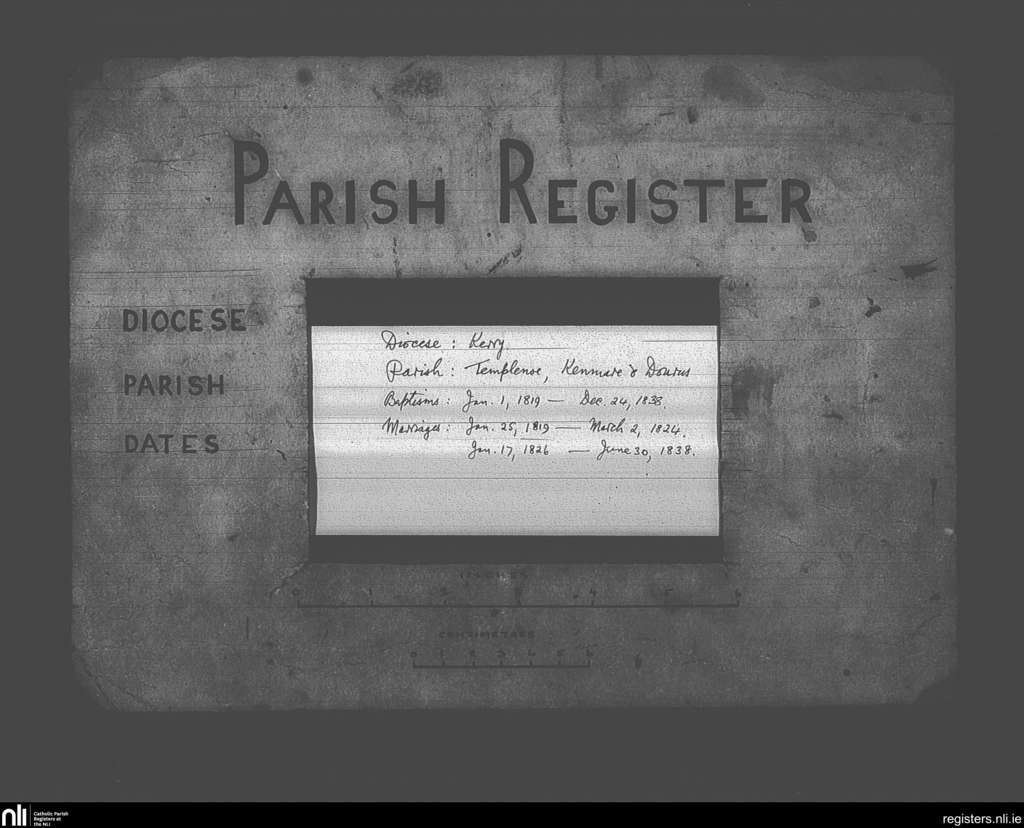 PARISH REGISTER
DIOCESE
PARISH
DATES
Diocese : Kerry.
Parish : Templenoe, Kenmare & Dourus
Baptisms : Jan. 1, 1819 — Dec. 24, 1838.
Marriages : Jan. 25, 1819 — March 2, 1824.
Jan. 17, 1826 — June 30, 1838.
0 1 2 3 4 5 6
CENTIMETRES
0 1 2 3 4 5 6
nli
Catholic Parish
Registers at
the NLI
registers.nli.ie